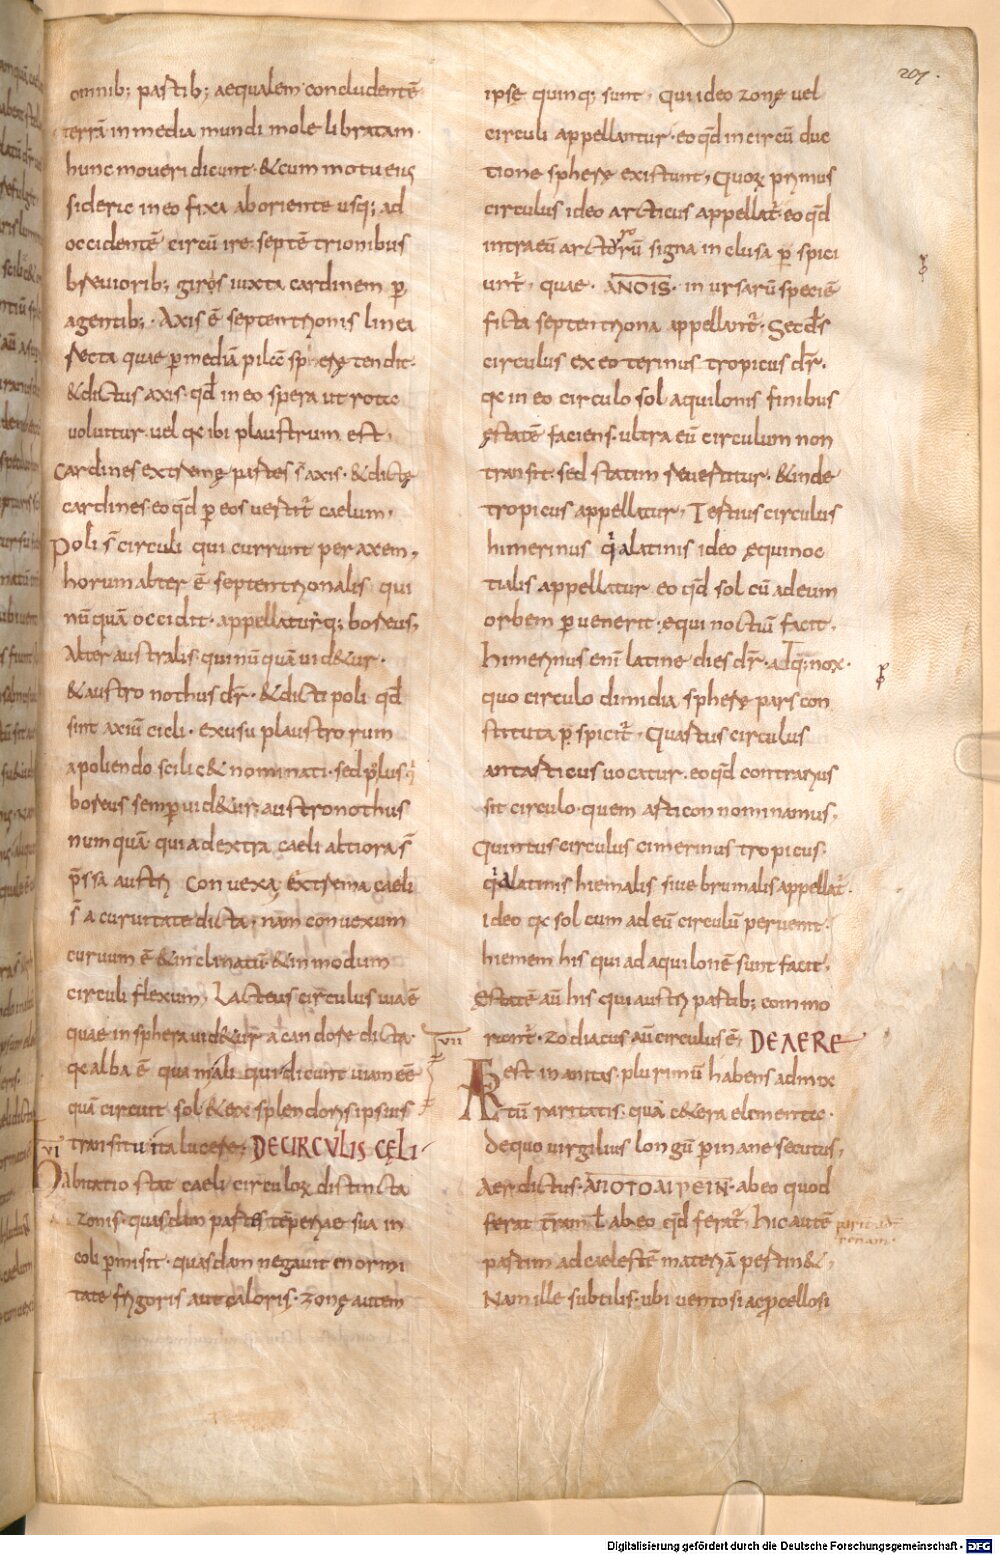 207.
omnib; partib; aequalem concludentē
terrā in media mundi mole libratam.
hunc moueri dicunt. &cum motu eius
siderie in eo fixa ab oriente usq; ad
occidentē circū ire. septē trionibus
breuiorib; giros iuxta cardinem p̄
agentib;. Axis ē septentrionis linea
recta quae p mediā pilae spherę tendit.
&dictus axis. qđ in eo spera ut rota
uoluitur. uel qe ibi plaustrum est,
Cardines extremę partes s̄ axis. &dictę
cardines. eo qđ p eos uertit̄ caelum,
Poli s̄ circuli qui currunt per axem,
horum alter ē septentrionalis qui
nū quā occidit. appellaturq; boreus,
Alter australis. qui nū quā uid&ur.
&austro nothus dr̄. &dicti poli qđ
sint axiū cicli. ex usu plaustrorum
a poliendo scilic& nominati. sed plus
boreus semp uid&ur. austronothus
numquā quia dextra caeli altiora s̄
p̄ssa austri Conuexa extrema caeli
s̄ a curuitate dicta. nam conuexum
curuum ē &inclinatū. &in modum
circuli flexum, Lacteus circulus uia ē
quae in sphera uid&ur a candore dicta.
qe alba ē quam ali qui dicunt uiam eē
quā circuit sol &ex splendoris ipsius
transitu ita lucere, DE CIRCULIS CĘLI.
VI
Habitatio stat caeli circulorum distincta
zonis. quasdam partes tēperiae sua in
coli pmisit. quasdam negauit enormi
tate frigoris aut caloris. zonę autem
ipse quinq; sunt. Qui ideo zonę uel
circuli appellantur. eo qđ in circū duc
tione spherę existunt, Quorum primus
circulus ideo arcticus appellat̄. eo qđ
intra eū arctorū signa inclusa p spici
unt̄, quae. ANOIS. in ursarū speciē
ficta septentriona appellant̄. Secds
circulus ex eo terinus tropicus dr̄.
qe in eo circulo sol aquilonis finibus
ęstatē faciens. ultra eū circulum non
transit. sed statim reuertitur. &inde
tropicus appellatur, Tertius circulus
himerinus q̇ a latinis ideo ęquinoc
tialis appellatur eo qđ sol cū ad eum
orbem p uenerit. equinoctiū facit.
himerinus enī latine dies dr̄. adq; nox.
quo circulo dimidia spherę pars con
stituta p spicit̄. Quartus circulus
antarticus uocatur. eo qđ contrarius
sit circulo. quem articon nominamus.
Quintus circulus cimerinus tropicus.
q̇ a latinis hiemalis siue brumalis appellat̄.
ideo qe sol cum ad eū circulū peruenit.
hiemem his qui ad aquilonē sunt facit,
Ęstatē aū his qui austri partib; commo
rant̄. Zodiacus aū circulus ē, DE AERE
VII
AER est inanitas. plurimū habens admix
tū raritatis. quā c&era elementa.
de quo uirgilius longū p inane secutus,
Aer dictus. ANOTOAIPEIN. ab eo quod
ferat terram. l ab eo qđ ferat̄. hic autē
partim ad caelestē materiā pertin&,
Nam ille subtilis. ubi uentosi ac pcellosi
Digitalisierung gefördert durch die Deutsche Forschungsgemeinschaft - DFG